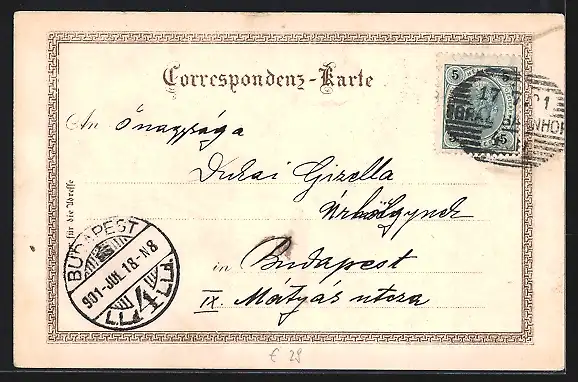 Correspondenz-Karte
5 5
17 01
GRAZ
NHOF
5 5
An Őnagysága
Dukai Gizella
Úrhölgynek
Nur für die Adresse
in Budapest
IX Mátyás utcza
BUDAPEST
901-JUL.18-N8
€ 29